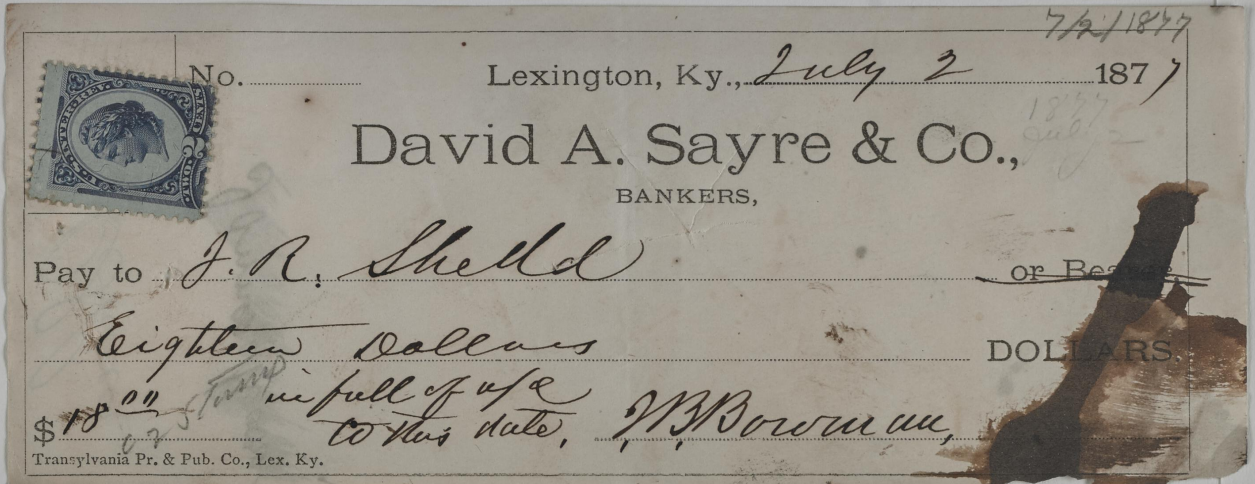 7/2/1877
No. Lexington, Ky., July 2 1877
1877
July 2
David A. Sayre & Co.,
BANKERS,
U.S. INTER. REV.
2
Pay to J. R. Shedd or Bearer,
Eighteen Dollars DOLLARS.
$ 18 00 in full of a/c
to this date, J.B. Bowman,
Transylvania Pr. & Pub. Co., Lex. Ky.